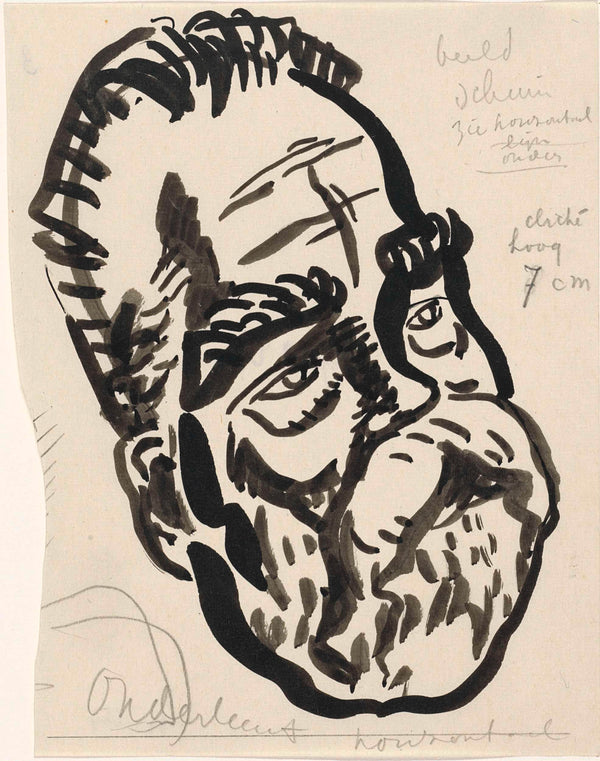 beeld
schuin
zie horizontaal
lijn
onder
cliché
hoog
7 cm
Onderkant horizontaal